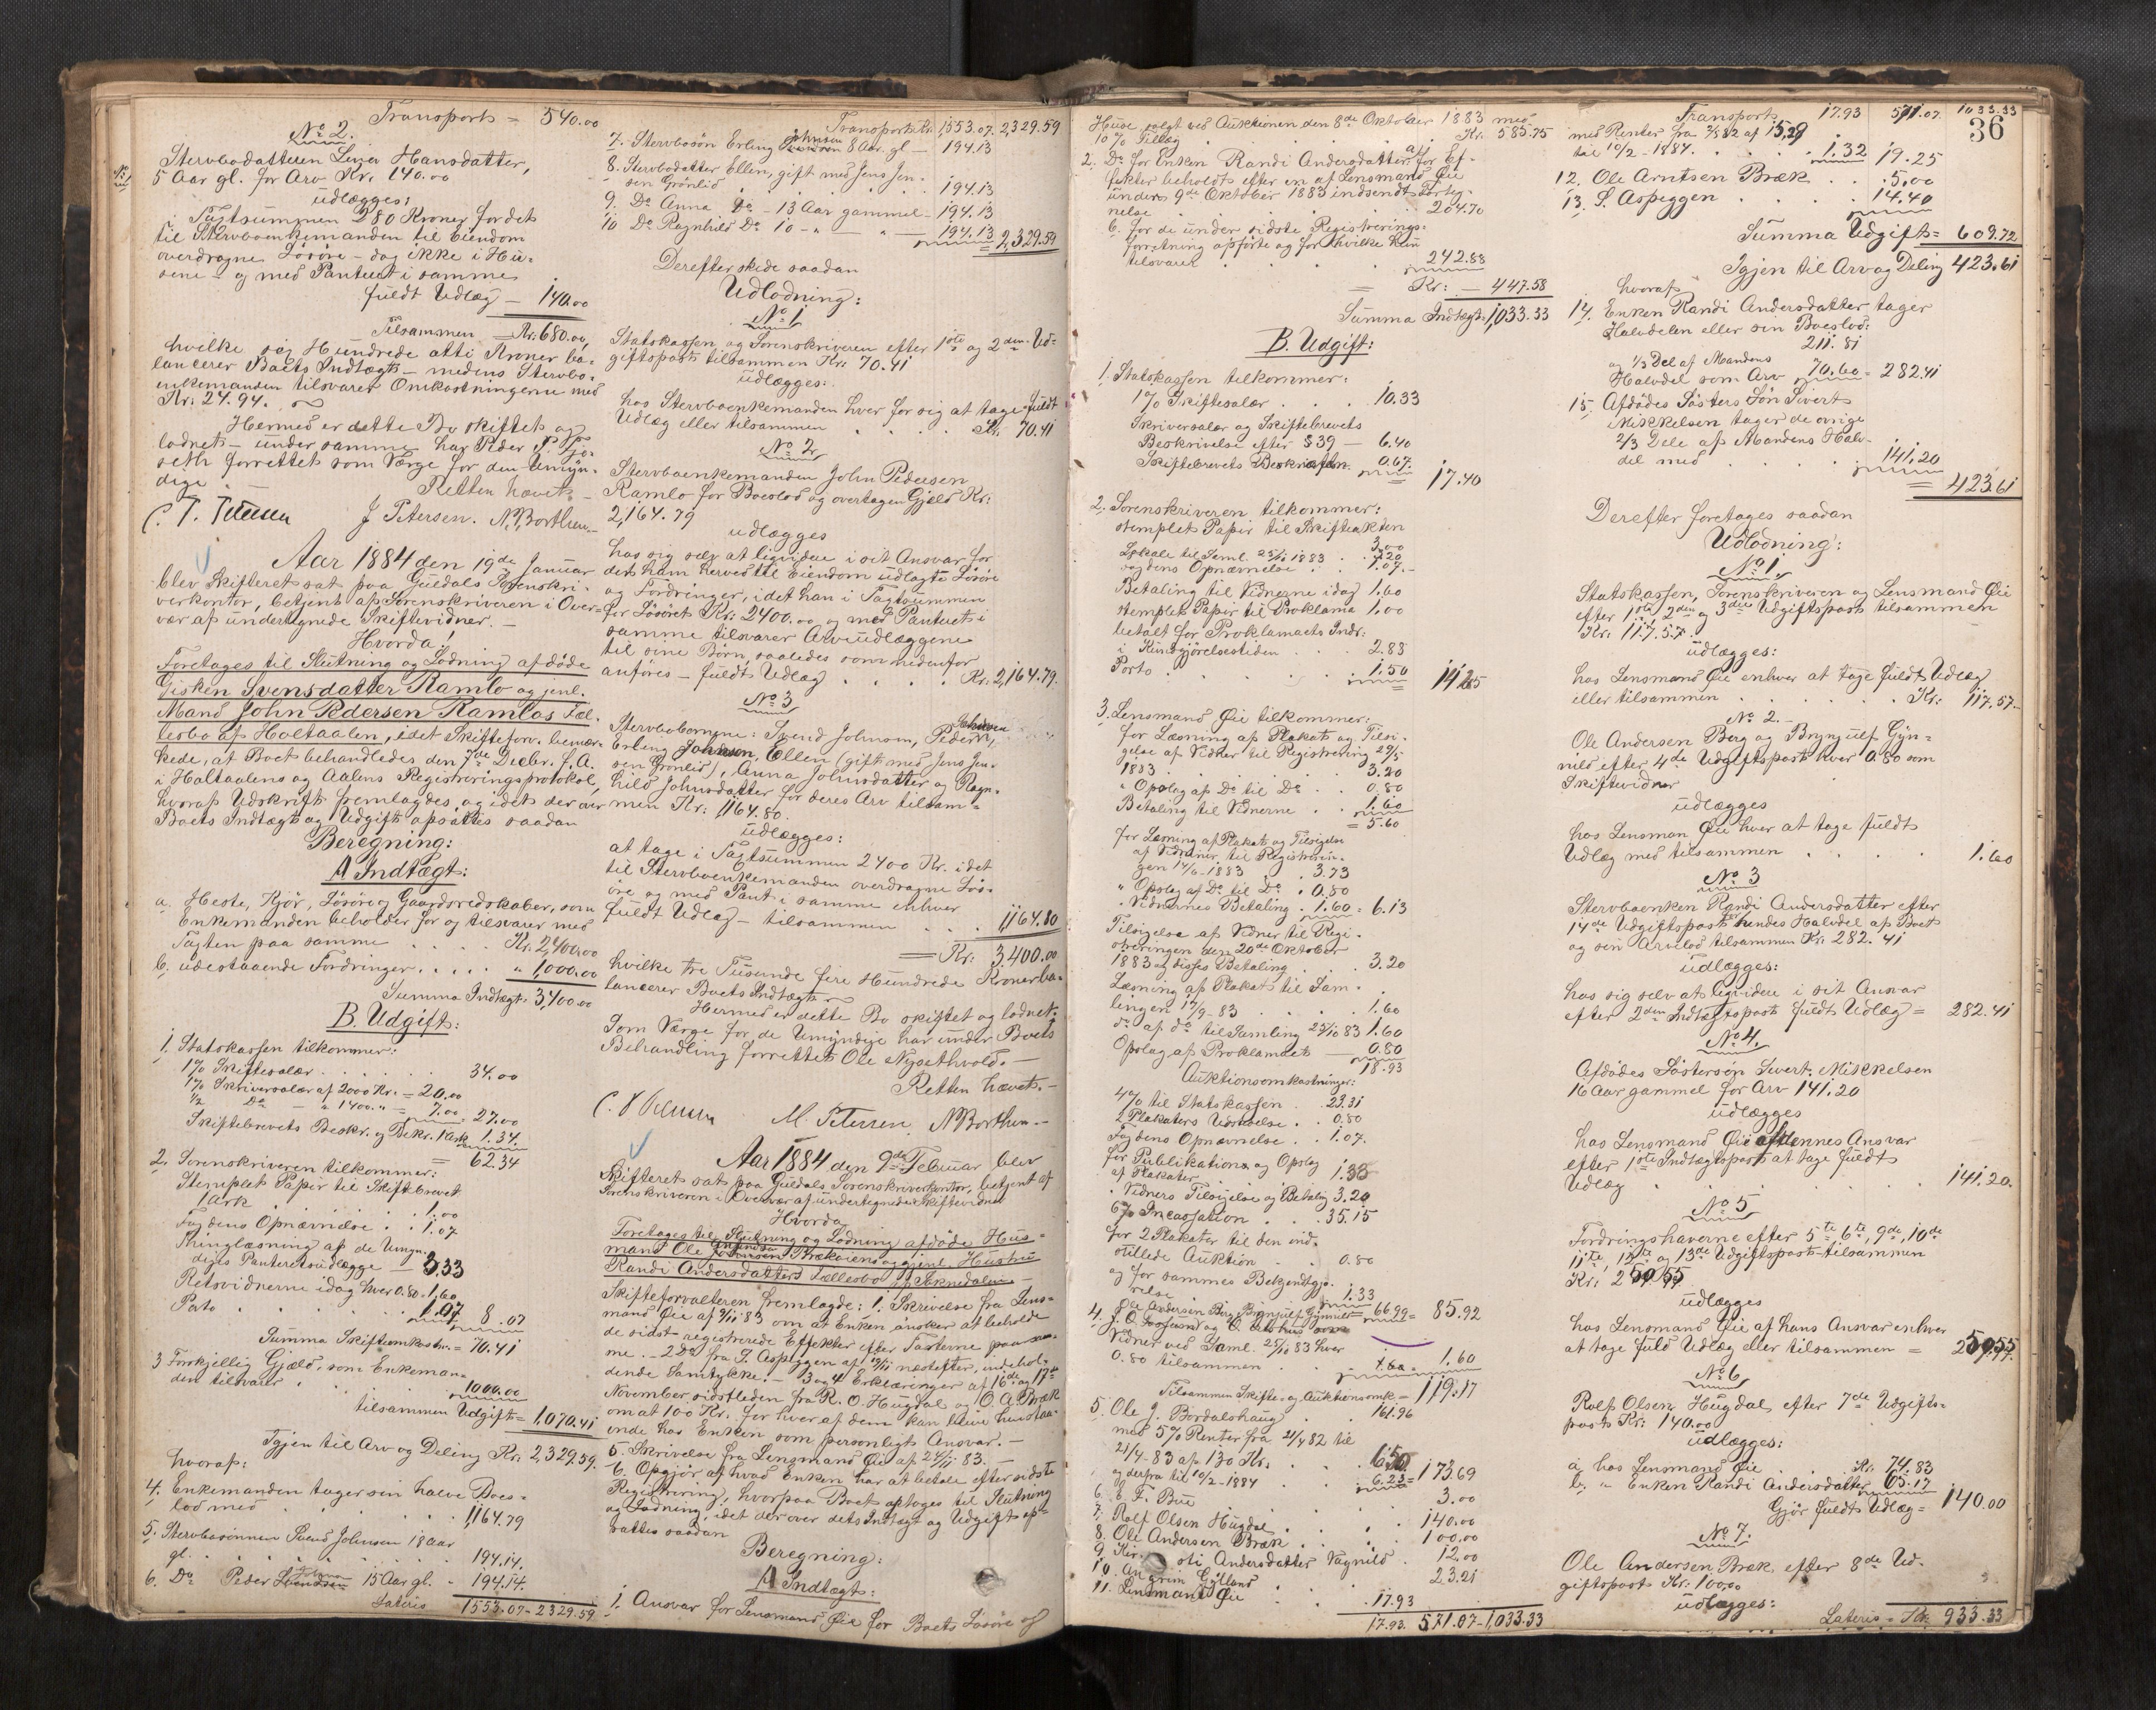 Transport = 540.00
No 2.
Stervbodatteren Lina Hansdatter,
5 Aar gl. for Arv Kr. 140.00
udlægges:
i Taxtsummen 280 Kroner for det
til Stervboenkemanden til Eiendom
overdragne Løsøre - dog ikke i Hu-
sene - og med Panteret i samme
fuldt Udlæg - 140.00
Tilsammen - Kr. 680.00,
hvilke sex Hundrede otti Kroner ba-
lancerer Boets Indtægt - medens Stervbo-
enkemanden tilsvarer Omkostningerne med
Kr. 24.94.
Hermed er dette Bo skiftet og
loddet - under samme har Peder
forrettet som Værge for den Umyn-
dige.
Retten hævet -
J Petersen. N. Borthen
Aar 1884 den 19de Januar
blev Skifteret sat paa Guldals Sorenskri-
verkontor, betjent af Sorenskriveren i Over-
vær af undertegnede Skiftevidner. -
Hvorda!
Foretages til Slutning og Lodning afdøde
Gisken Svensdatter Ramlo og jenl.
Mand John Pedersen Ramlos Fæl-
lesbo af Holtaalen, idet Skifteforv. bemær-
kede, at Boet behandledes den 7de Decbr. f. A.
i Holtaalens og Aalens Registreringsprotokol,
hvoraf Udskrift fremlagdes, og idet der over
Boets Indtægt og Udgift opsattes saadan
Beregning:
A Indtægt:
a. Heste, Kjør, Løsøre og Gaardsredskaber, som
Enkemanden beholder for og tilsvarer med
Taxten paa samme . . . . Kr. 2,400.00
b. udestaaende Fordringer . . . . " 1,000.00
Summa Indtægt 3,400.00
B. Udgift:
1. Statskassen tilkommer:
1% Skiftesalær . . . . . 34.00
1% Skriversalær af 2000 Kr. = 20.00
1/2 Do - " 1400 " = 7.00 = 27.00
Skiftebrevets Beskr. og Bekr. 1 Ark 1.34.
= 62.34
2. Sorenskriveren tilkommer:
Stemplet Papir til Skiftebrevet
1 Ark . . . . 1.00
Fogdens Opnævnelse . . 1.07
Thinglæsning af de Umyn-
diges Panteretsudlægge - 3.33
Retsvidnerne idag hver 0.80 = 1.60
Porto . . . . 1.07 8.07
Summa Skifteomkostn. = 70.41
3 Forskjellig Gjæld, som Enkeman-
den tilsvarer . . . 1000.00
tilsammen Udgift = 1,070.41
Igjen til Arv og Deling Kr. 2,329.59.
hvoraf:
4. Enkemanden tager sin halve Boes-
lod med . . . . 1,164.79
5. Stervbosønnen Svend Johnsen 18 Aar
gl. . . . . 194.14.
6. Do Peder Johnsen 15 Aar gl. . 194.14.
Lateris 1553.07 - 2329.59
Transport Kr. 1,553.07. 2,329.59
7. Stervbosøn Erling Johnsen 8 Aar gl - 194.13
8. Stervbodatter Ellen, gift med Jens Jen-
sen Grønlid . . . . 194.13
9. Do Anna Do - 13 Aar gammel - 194.13
10 Do Ragnhild Do 10 - " - " - 194.13
= 2,329.59
Derefter skede saadan
Udlodning:
No 1
Statskassen og Sorenskriveren efter 1ste og 2den Ud-
giftspost tilsammen Kr. 70.41
udlægges:
hos Stervboenkemanden hver for sig at tage fuldt
Udlæg eller tilsammen . . . Kr. 70.41
No 2
Stervboenkemanden John Pedersen
Ramlo for Boeslod og overtagen Gjæld Kr:
2,164.79
udlægges
hos sig selv at liqvidere i sit Ansvar for
det ham herved til Eiendom udlagte Løsøre
og Fordringer, idet han i Taxtsummen
for Løsøret Kr: 2400.00 og med Panteret i
samme tilsvarer Arveudlæggene
til sine Børn, saaledes som nedenfor
anføres - fuldt Udlæg . . . . Kr. 2,164.79.
No 3
Stervbobørnene: Svend Johnsen, Peder Johnsen,
Erling Johnsen, Ellen (gift med Jens Jen-
sen Grønlid), Anna Johnsdatter og Ragn-
hild Johnsdatter for deres Arv tilsam-
men Kr. 1,164.80.
udlægges:
at tage i Taxtsummen 2400 Kr. i det
til Stervboenkemanden overdragne Løs-
øre og med Pant i samme enhver
fuldt Udlæg - tilsammen . . . . 1,164.80
= Kr. 3,400.00
hvilke tre Tusende fire Hundrede Kroner ba-
lancerer Boets Indtægt.
Hermed er dette Bo skiftet og loddet.
Som Værge for de Umyndige har under Boets
Behandling forrettet Ole Nygethvold. -
Retten hævet. -
M. Petersen N Borthen. -
Aar 1884 den 9de Februar blev
Skifteret sat paa Guldals Sorenskriverkontor, betjent af
Sorenskriveren i Overvær af undertegnede Skiftevidner
Hvorda
Foretages til Slutning og Lodning afdøde Hus-
mand Ole Brækøiens og gjenl. Hustru
Randi Andersdatters Fællesbo af Soknedalen. -
Skifteforvalteren fremlagde: 1. Skrivelse fra Lens-
mand Øie af 9/11 83 om at Enken ønsker at beholde
de sidst registrerede Effekter efter Taxterne paa sam-
me. - 2 Do fra S. Aspeggen af næstefter, indehol-
dende Samtykke. - 3 og 4 Erklæringer af 16de og 17de
November sidstleden fra R. O. Hugdal og O. A. Bræk
om at 100 Kr. for hver af dem kan blive henstaa-
ende hos Enken som personligt Ansvar. -
5. Skrivelse fra Lensmand Øie af 24/11 83. -
6. Opgjør af hvad Enken har at betale efter sidste
Registrering, hvorpaa Boet optoges til Slutning
og Lodning, idet der over dets Indtægt og Udgift op-
sattes saadan
Beregning:
A Indtægt:
1. Ansvar for Lensmand Øie for Boets Løsøre og
Huse solgt ved Auktionen den 8de Oktober 1883 med
10% Tillæg . . . . Kr. 585.75
2. Do for Enken Randi Andersdatter: a) for Ef-
fekter beholdt efter en af Lensmand Øie
under 9de Oktober 1883 indsendt Forteg-
nelse . . . . 204.70
b. for de under sidste Registrerings-
forretning opførte og for hvilke hun
tilsvarer . . . . 242.88
= Kr: - 447.58
Summa Indtægt 1,033.33
B. Udgift:
1. Statskassen tilkommer:
1% Skiftesalær . . . 10.33
Skriversalær og Skiftebrevets
Beskrivelse efter § 39 - 6.40
Skiftebrevets Bekræfteln. 0.67.
= 17.40
2. Sorenskriveren tilkommer:
stemplet Papir til Skifteakten 3.00
Lokale til Saml. 25/10 1883 . . 1.20
Fogdens Opnævnelse . . 1.07. -
Betaling til Vidnerne idag 1.60
stemplet Papir til Proklama 1.00
betalt for Proklamaets Indr:
i Kundgjørelsestiden . . . 2.88
Porto . . . . 1.50
=
3. Lensmand Øie tilkommer:
for Læsning af Plakat og Tilsi-
gelse af Vidner til Registrering 29/5
1883 . . . . 3.20
" Opslag af Do til Do . . 0.80
Betaling til Vidnerne . . 1.60
= 5.60
for Læsning af Plakat og Tilsigelse
af Vidner til Registrerin-
gen 14/6 - 1883 . 3.73
" Opslag af Do til Do . 0.80
. Vidnernes Betaling . 1.60 = 6.13
Tilsigelse af Vidner til Regi-
streringen den 20de Oktober
1883 og disses Betaling . . . 3.20
Læsning af Plakat til Sam-
lingen 17/9 - 83 . . . . 1.60
do af do til Samling 25/10 83 1.60
Opslag af Proklamaet - 0.80
18.93
Auktionsomkostninger:
4% til Statskassen . 23.31
2 Plakaters Udstedelse . . 0.80
Fogdens Opnævnelse . . 1.07.
for Publikation og Opslag
af Plakater . . . 1.33
. Vidners Tilsigelse og Betaling 3.20
6% Incassation . . . 35.15
for 2 Plakater til den ind-
stillede Auktion . . 0.80
og for sammes Bekjendtgjø-
relse . . . . 1.33
= 66.99 = 85.92
4. Ole Andersen Berg, Brynjulf Gynnild
Vidner ved Saml. 25/10 83 hver
0.80 tilsammen . . . 1.60
Tilsammen Skifte og Auktionsomk = 119.17
5. Ole J. Bordalshaug . . 161.96
med 5% Renter fra 21/4 82 til
21/4 - 83 af 130 Kr. . . 6.50
og derfra til 10/2 - 1884 . . 6.23 = 173.69
6. E F. Bue . . . 3.00
7. Rolf Olsen Hugdal . . . . 140.00
8. Ole Andersen Bræk . . . . 100.00
9. Andersdatter Vagnild . 12.00
10. . . . 23.21
11. Lensmand Øie . . . 17.93
17.93. 571.07 - 1,033.33
36
Transport 17.93 571.07 1033.33
med Renter fra af 15.29
til 10/2 - 1884 . . . . 1.32 19.25
12. Ole Arntsen Bræk . . . 5.00
13. S. Aspeggen . . . . 14.40
Summa Udgift = 609.72
Igjen til Arv og Deling 423.61
hvoraf
14. Enken Randi Andersdatter tager
Halvdelen eller sin Boeslod:
211.81
og 1/3 Del af Mandens
Halvdel som Arv 70.60 = 282.41
15. Afdødes Søsters Søn Sivert
Mikkelsen tager de øvrige
2/3 Dele af Mandens Halv-
del med . . . . 141.20
= 423.61
Derefter foretages saadan
Udlodning:
No 1
Statskassen, Sorenskriveren og Lensmand Øie
efter 1ste, 2den og 3die Udgiftspost tilsammen
Kr. 117.57.
udlægges:
hos Lensmand Øie enhver at tage fuldt Udlæg
eller tilsammen . . . . Kr: 117.57.
No 2. -
Ole Andersen Berg og Brynjulf Gyn-
nild efter 4de Udgiftspost hver 0.80 som
Skiftevidner
udlægges
hos Lensman Øie hver at tage fuldt
Udlæg med tilsammen . . . . 1.60
No 3
Stervboenken Randi Andersdatter efter
14de Udgiftspost for hendes Halvdel af Boet
og sin Arvelod tilsammen Kr. 282.41
udlægges:
hos sig selv at liqvidere i sit Ansvar
efter 2den Indtægtspost fuldt Udlæg = 282.41
No 4.
Afdødes Søstersøn Sivert Mikkelsen
16 Aar gammel for Arv 141.20
udlægges
hos Lensmand Øie af dennes Ansvar
efter 1ste Indtægtspost at tage fuldt
Udlæg . . . . 141.20.
No 5
Fordringshaverne efter 5te, 6te, 9de, 10de
11te, 12te og 13de Udgiftspost tilsammen
Kr:
udlægges
hos Lensmand Øie af hans Ansvar enhver
at tage fuld Udlæg eller tilsammen =
No 6
Rolf Olsen Hugdal efter 7de Udgifts-
post Kr: 140.00
udlægges:
a, hos Lensmand Øie . . . Kr. 74.83
b, " Enken Randi Andersdatter 65.17
Gjør fuldt Udlæg = 140.00
No 7.
Ole Andersen Bræk efter 8de Ud-
giftspost Kr: 100.00
udlægges:
Lateris = Kr 933.33